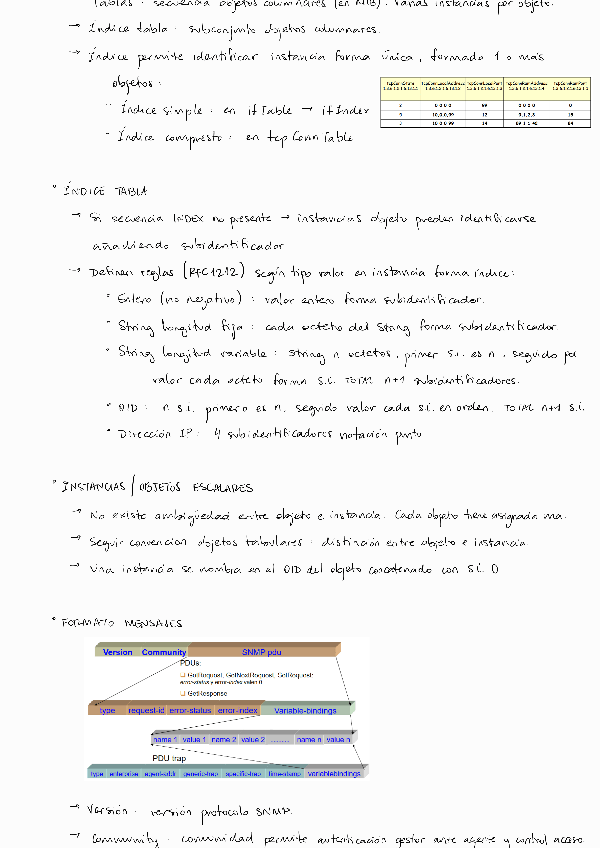 Tablas : secuencia objetos columnares (en MIB). Varias instancias por objeto.
→ Índice tabla : subconjunto objetos columnares.
→ Índice permite identificar instancia forma única, formado 1 o más
objetos :
" Índice simple : en ifTable → ifIndex
" Índice compuesto : en tcpConnTable
° ÍNDICE TABLA
→ Si secuencia INDEX no presente → instancias objeto pueden identificarse
añadiendo subidentificador
→ Definen reglas (RFC1212) según tipo valor en instancia forma índice :
° Entero (no negativo) : valor entero forma subidentificador.
° String longitud fija : cada octeto del string forma subidentificador
° String longitud variable : string n octetos, primer s.i. es n, seguido por
valor cada octeto forma s.i. TOTAL n+1 subidentificadores.
° OID : n s.i. primero es n, seguido valor cada s.i. en orden. TOTAL n+1 s.i.
° Dirección IP : 4 subidentificadores notación punto
° INSTANCIAS / OBJETOS ESCALARES
→ No existe ambigüedad entre objeto e instancia. Cada objeto tiene asignada una.
→ Seguir convencion objetos tabulares : distinción entre objeto e instancia.
→ Una instancia se nombra en el OID del objeto concatenado con s.i. 0
° FORMATO MENSAJES
Version Community SNMP pdu
PDUs:
GetRequest, GetNextRequest, SetRequest:
error-status y error-index valen 0
GetResponse
type request-id error-status error-index Variable-bindings
name 1 value 1 name 2 value 2 ......... name n value n
PDU trap
type enterprise agent-addr generic-trap specific-trap time-stamp variablebindings
→ Versión : versión protocolo SNMP.
→ Community : comunidad permite autenticación gestor ante agente y control acceso